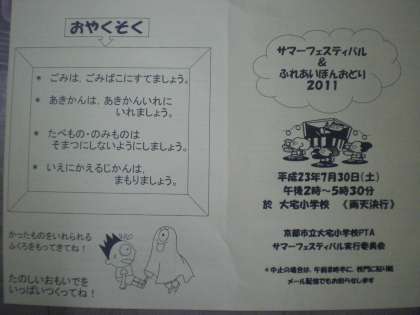 おやくそく
* ごみは、ごみばこにすてましょう。
* あきかんは、あきかんいれに
いれましょう。
* たべもの・のみものは
そまつにしないようにしましょう。
* いえにかえるじかんは、
まもりましょう。
かったものをいれられる
ふくろをもってきてね！
たのしいおもいでを
いっぱいつくってね！
サマーフェスティバル
&
ふれあいぼんおどり
2011
平成23年7月30日(土)
午後2時～5時30分
於 大宅小学校 《雨天決行》
京都市立大宅小学校PTA
サマーフェスティバル実行委員会
* 中止の場合は、午前8時半に、校門に貼り紙
メール配信でもお知らせします